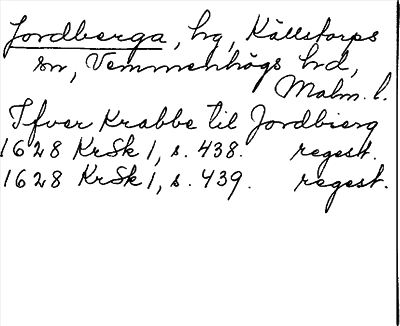 Jordberga, hg, Källstorps
sn, Vemmenhögs hd,
Malm. l.
Ifver Krabbe til Jordbierg
1628 KrSk 1, s. 438. regest.
1628 KrSk 1, s. 439. regest.